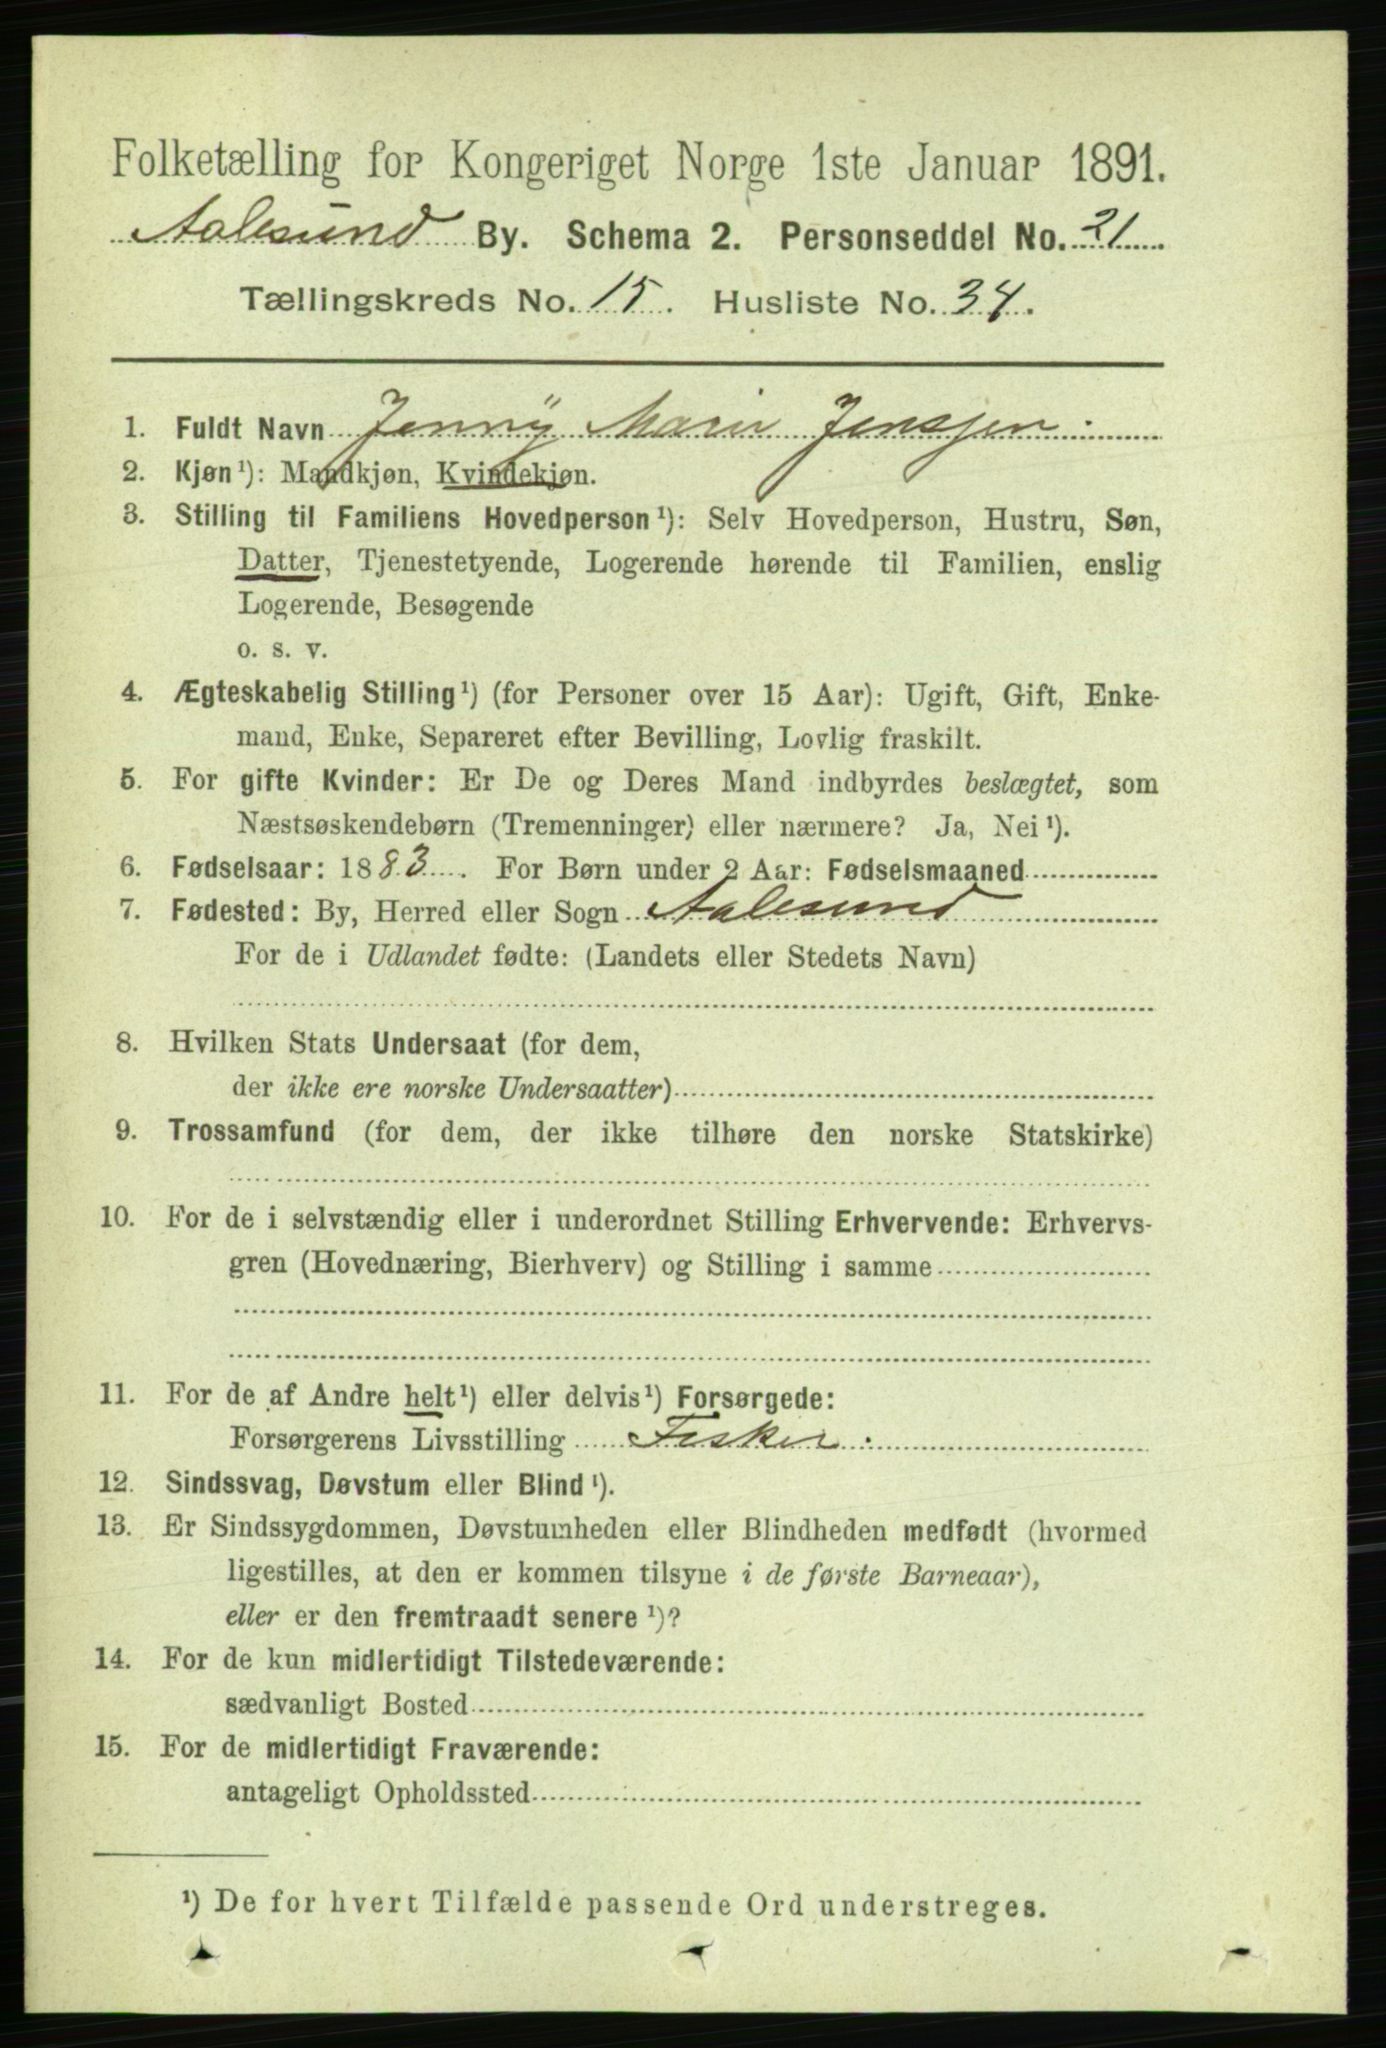 Folketælling for Kongeriget Norge 1ste Januar 1891.
Aalesund By. Schema 2. Personseddel No. 21
Tællingskreds No. 15. Husliste No. 34.
1. Fuldt Navn Jenny Marie Jenssen
2. Kjøn¹): Mandkjøn, Kvindekjøn.
3. Stilling til Familiens Hovedperson¹): Selv Hovedperson, Hustru, Søn,
Datter, Tjenestetyende, Logerende hørende til Familien, enslig
Logerende, Besøgende
o. s. v.
4. Ægteskabelig Stilling¹) (for Personer over 15 Aar): Ugift, Gift, Enke-
mand, Enke, Separeret efter Bevilling, Lovlig fraskilt.
5. For gifte Kvinder: Er De og Deres Mand indbyrdes beslægtet, som
Næstsøskendebørn (Tremenninger) eller nærmere? Ja, Nei¹).
6. Fødselsaar: 1883. For Børn under 2 Aar: Fødselsmaaned
7. Fødested: By, Herred eller Sogn Aalesund
For de i Udlandet fødte: (Landets eller Stedets Navn)
8. Hvilken Stats Undersaat (for dem,
der ikke ere norske Undersaatter)
9. Trossamfund (for dem, der ikke tilhøre den norske Statskirke)
10. For de i selvstændig eller i underordnet Stilling Erhvervende: Erhvervs-
gren (Hovednæring, Bierhverv) og Stilling i samme
11. For de af Andre helt¹) eller delvis¹) Forsørgede:
Forsørgerens Livsstilling Fisker
12. Sindssvag, Døvstum eller Blind¹).
13. Er Sindssygdommen, Døvstumheden eller Blindheden medfødt (hvormed
ligestilles, at den er kommen tilsyne i de første Barneaar),
eller er den fremtraadt senere¹)?
14. For de kun midlertidigt Tilstedeværende:
sædvanligt Bosted
15. For de midlertidigt Fraværende:
antageligt Opholdssted
¹) De for hvert Tilfælde passende Ord understreges.